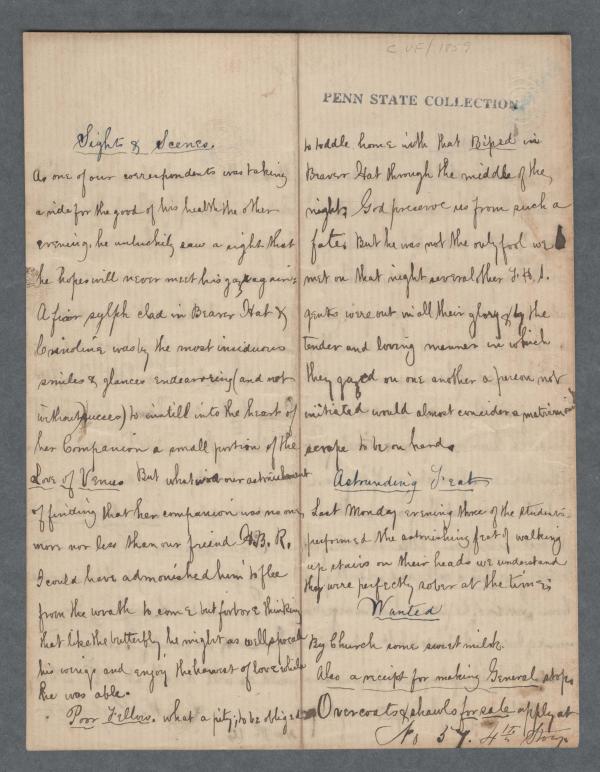 C VF/1859
PENN STATE COLLECTION
Sights & Scenes.
As one of our correspondents was taking
a ride for the good of his health the other
evening, he unluckily saw a sight that
he hopes will never meet his gaze again:
A fair sylph clad in Beaver Hat &
Crinoline was by the most insiduous
smiles & glances endeavoring (and not
without success) to instill into the heart of
her Companion a small portion of the
Love of Venus But what was our astonishment
of finding that her companion was no one
more nor less than our friend H. B. R.
I could have admonished him to flee
from the wrath to come but forbore thinking
that like the butterfly, he might as well
his wings and enjoy the harvest of love while
he was able.
Poor Fellow. what a pity; to be obliged
to toddle home with that Biped in
Beaver Hat through the middle of the
night, God preserve us from such a
fate. But he was not the only fool we
met on that night several other F. H. S.
gents were out in all their glory & by the
tender and loving manner in which
they gazed on one another a person not
initiated would almost concider a matrimonial
scrape to be on hands
Astounding Feat
Last Monday evening three of the students
performed the astonishing feat of walking
up stairs on their heads we understand
they were perfectly sober at the time;
Wanted
By Church some sweet milk.
Also a receipt for making General stops
Overcoats & shawls for sale apply at
No 57. 4th Story